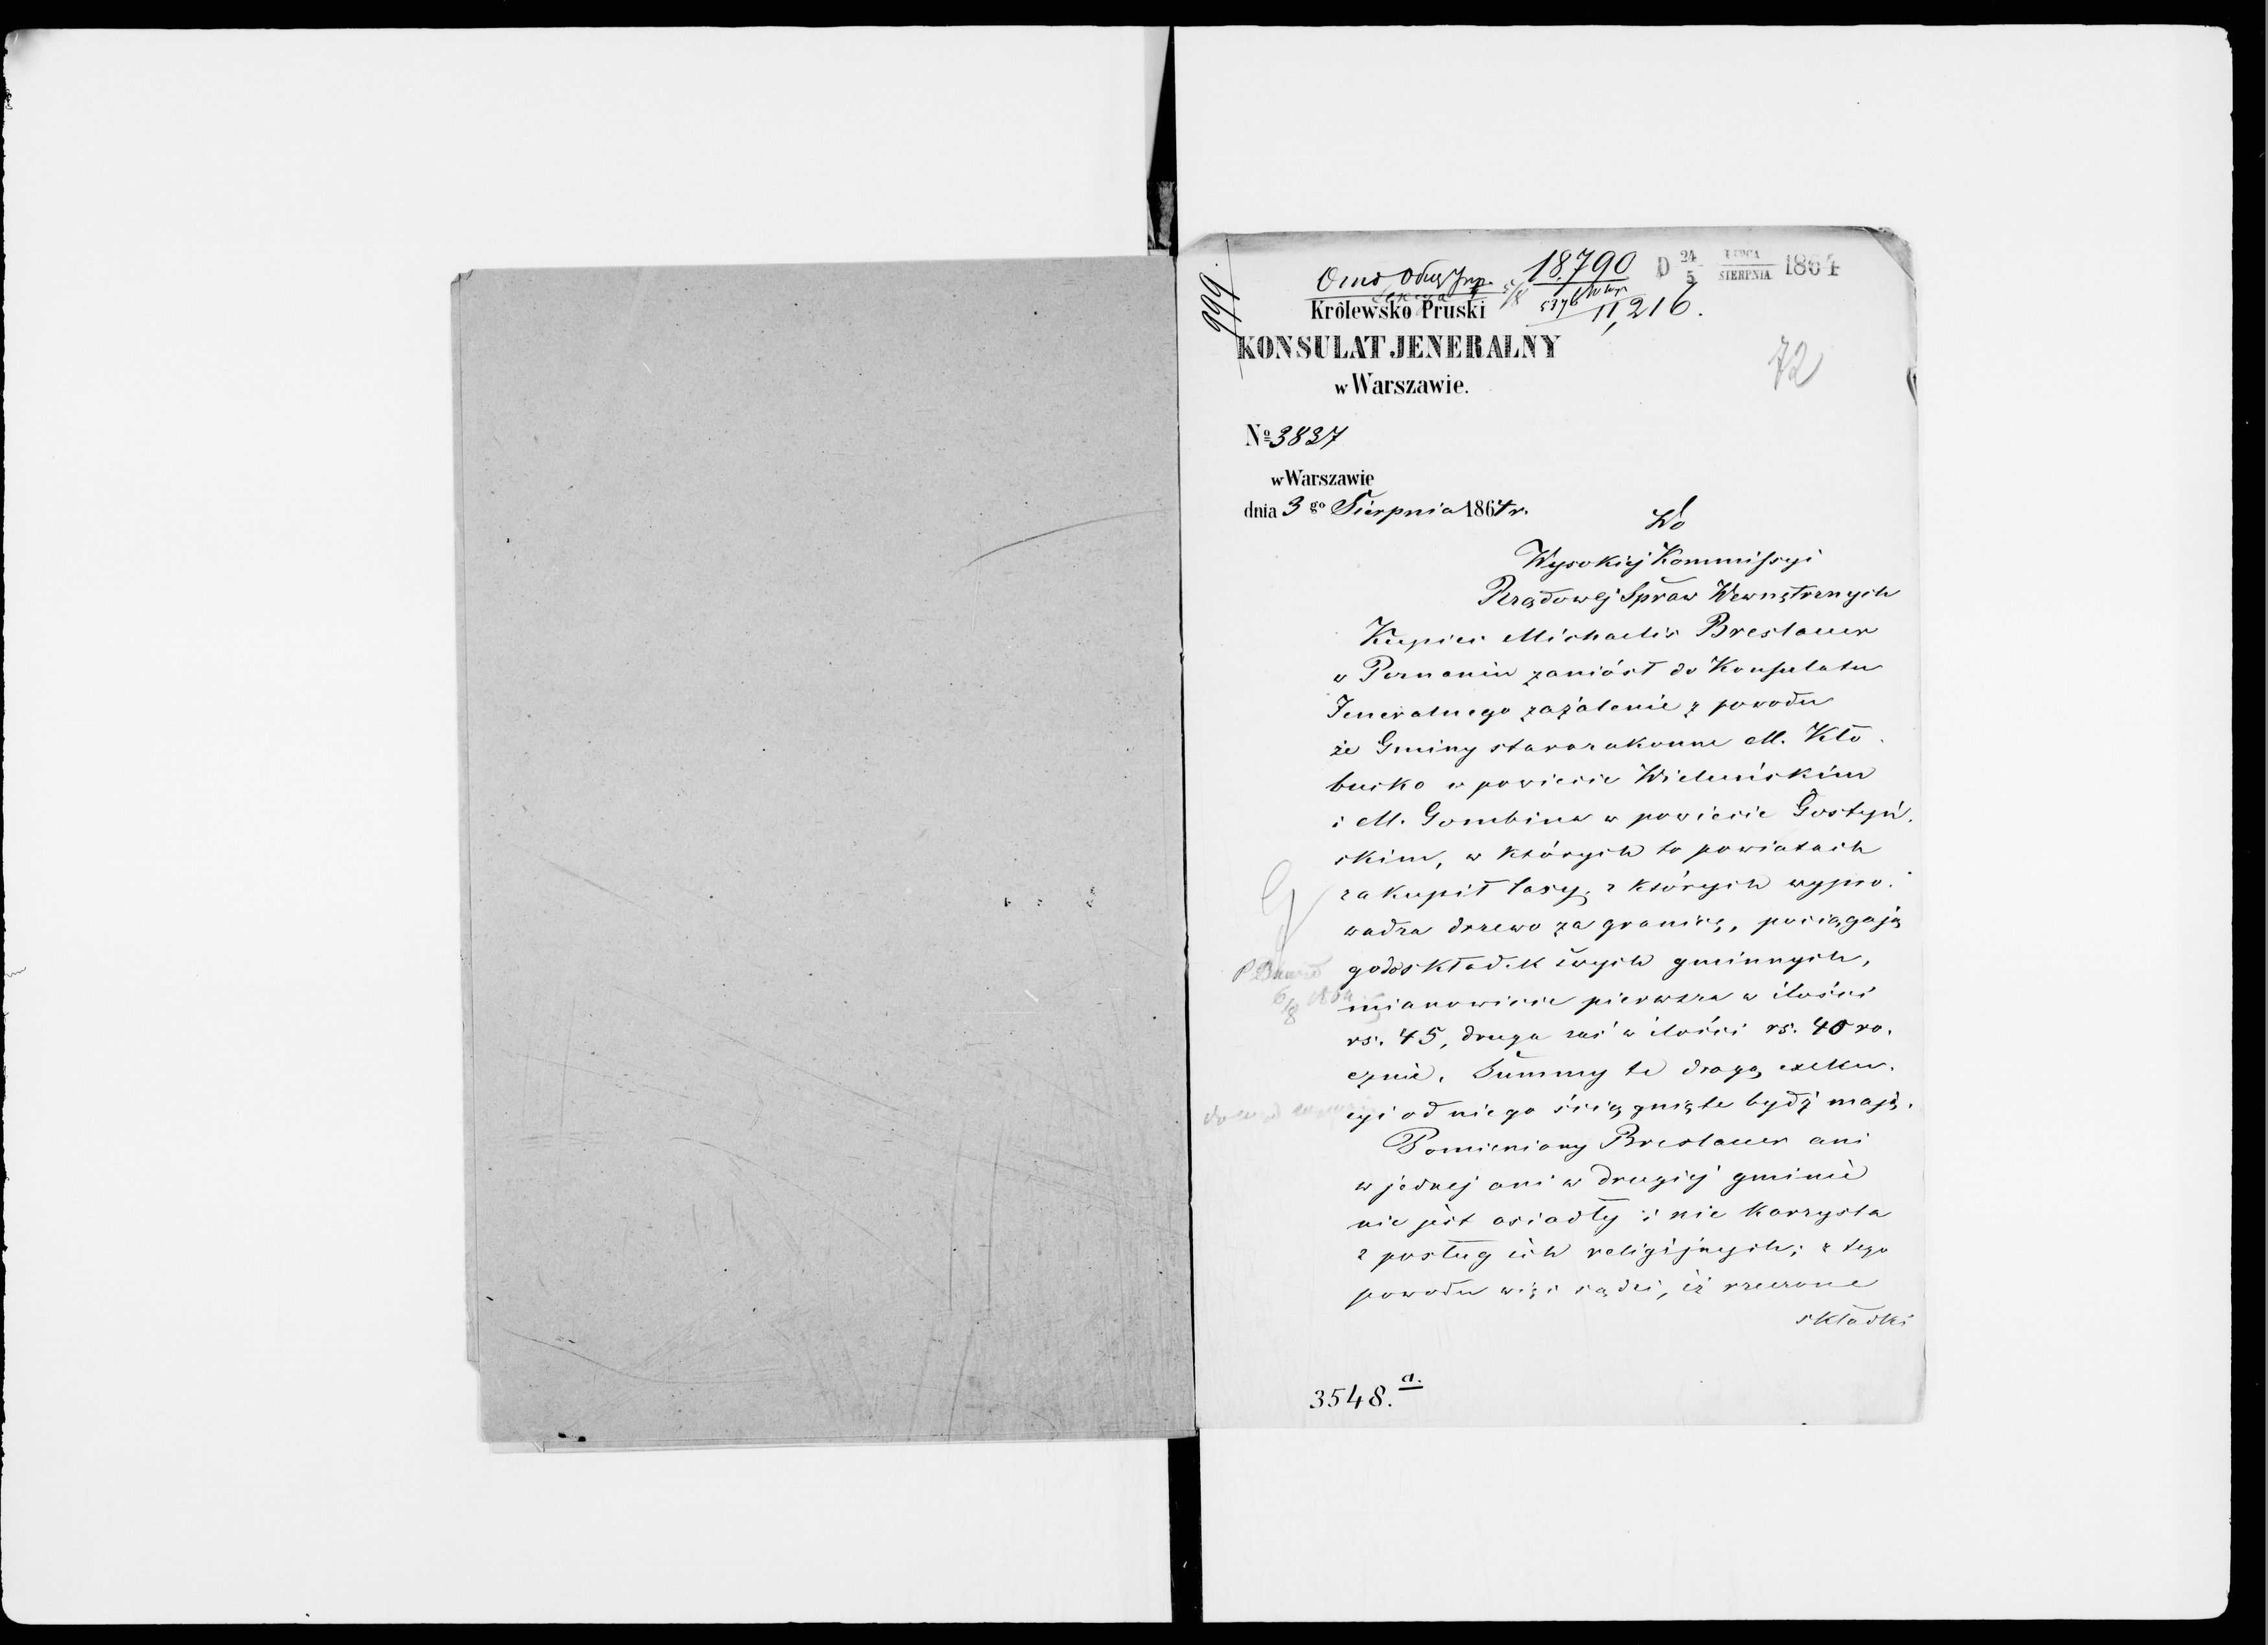 999
18,790
D 24/5 LIPCA/SIERPNIA 1864
Królewsko Pruski
11,216.
KONSULAT JENERALNY
w Warszawie.
72
No 3837
w Warszawie
dnia 3 go Sierpnia 1864 r.
Do
Wysokiej Kommissyi
Rządowej Spraw Wewnętrznych
Kupiec Michaelis Breslauer
w Poznaniu zaniósł do Konsulatu
Jeneralnego zażalenie z powodu
że Gminy starozakonne M. Kło-
bucko w powiecie Wieluńskim
i M. Gombina w powiecie Gostyń-
skim, w których to powiatach
zakupił lasy, z których wypro-
wadza drzewo za granicę, pociągają
go do składek swych gminnych,
mianowicie pierwsza w ilości
rs. 45, druga zaś w ilości rs. 40 ro-
cznie. Summy te drogą exeku-
cyi od niego ściągnięte bydź mają.
Pomieniony Breslauer ani
w jednej ani w drugiej gminie
nie jest osiadły i nie korzysta
z posług ich religijnych; z tego
powodu więc sądzi, iż rzeczone
składki
3548. a.